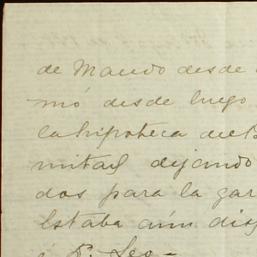 de Mando desde
mó desde luego
la hipoteca
mitad dejando
dos para la gar
Estaba aún dis
á S. Seo-